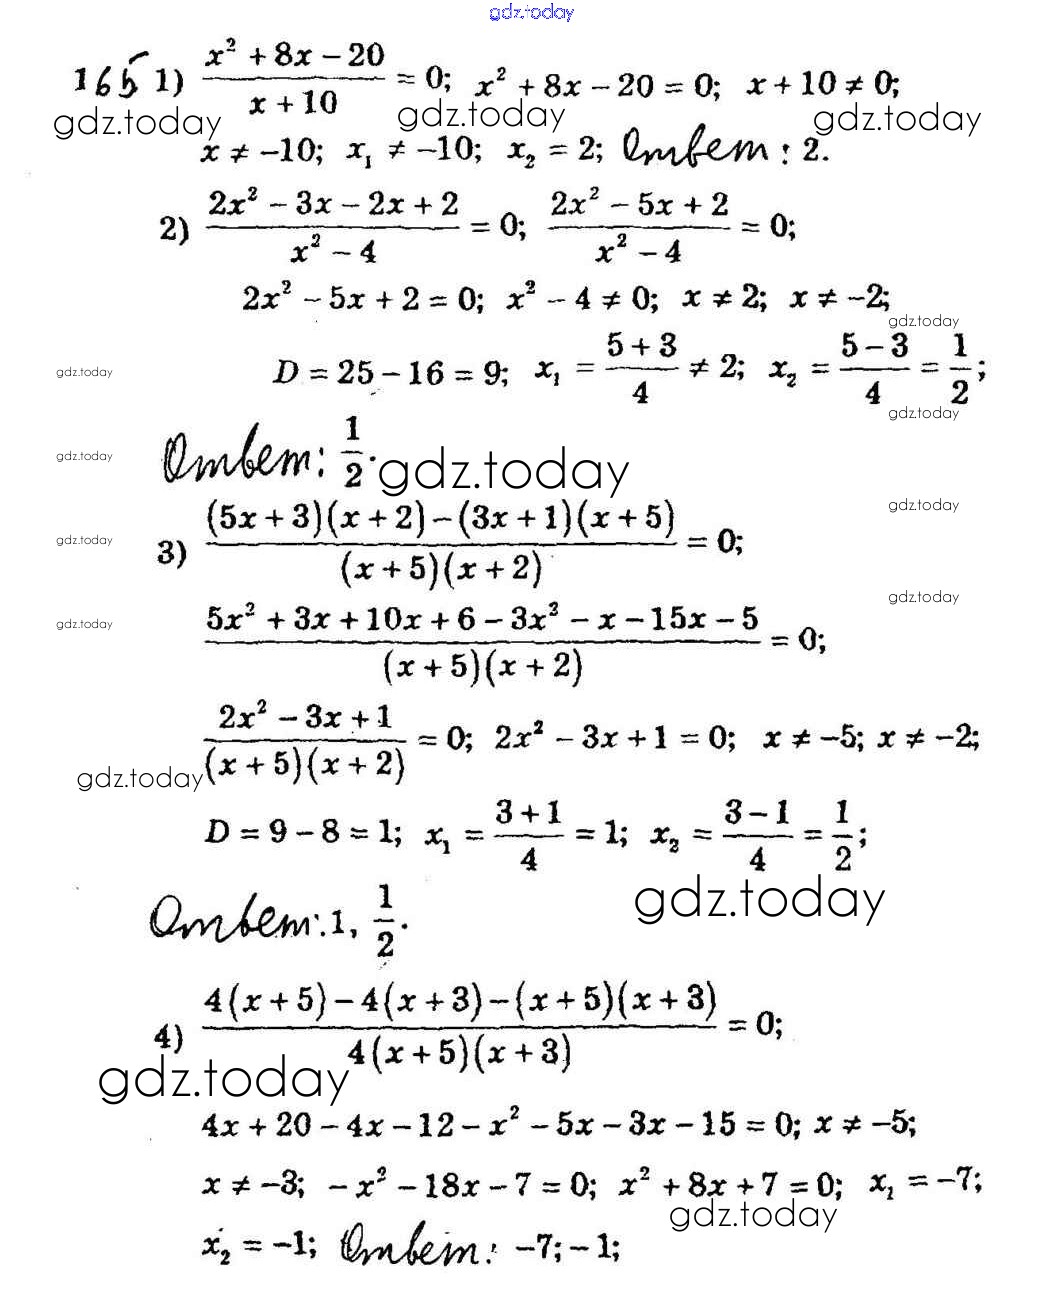 gdz.today
165 1) (x² + 8x − 20)/(x + 10) = 0; x² + 8x − 20 = 0; x + 10 ≠ 0;
gdz.today gdz.today gdz.today
x ≠ −10; x₁ ≠ −10; x₂ = 2; Ответ: 2.
2) (2x² − 3x − 2x + 2)/(x² − 4) = 0; (2x² − 5x + 2)/(x² − 4) = 0;
2x² − 5x + 2 = 0; x² − 4 ≠ 0; x ≠ 2; x ≠ −2;
gdz.today
D = 25 − 16 = 9; x₁ = (5 + 3)/4 ≠ 2; x₂ = (5 − 3)/4 = 1/2;
gdz.today
gdz.today
Ответ: 1/2.
gdz.today gdz.today
gdz.today
3) ((5x + 3)(x + 2) − (3x + 1)(x + 5))/((x + 5)(x + 2)) = 0;
gdz.today
gdz.today
(5x² + 3x + 10x + 6 − 3x² − x − 15x − 5)/((x + 5)(x + 2)) = 0;
gdz.today
(2x² − 3x + 1)/((x + 5)(x + 2)) = 0; 2x² − 3x + 1 = 0; x ≠ −5; x ≠ −2;
gdz.today
D = 9 − 8 = 1; x₁ = (3 + 1)/4 = 1; x₂ = (3 − 1)/4 = 1/2;
gdz.today
Ответ: 1, 1/2.
4) (4(x + 5) − 4(x + 3) − (x + 5)(x + 3))/(4(x + 5)(x + 3)) = 0;
gdz.today
4x + 20 − 4x − 12 − x² − 5x − 3x − 15 = 0; x ≠ −5;
x ≠ −3; − x² − 18x − 7 = 0; x² + 8x + 7 = 0; x₁ = −7;
gdz.today
x₂ = −1; Ответ: −7; − 1;